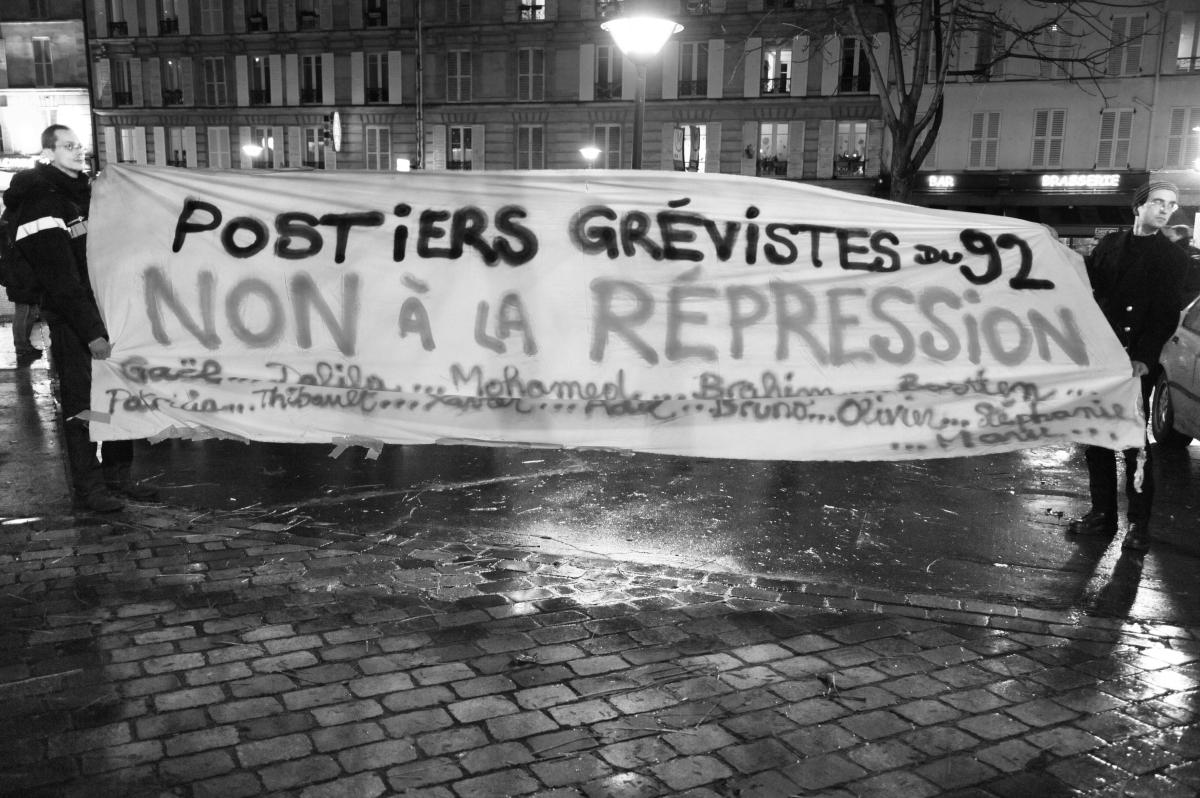 BAR
BRASSERIE
POSTIERS GRÉVISTES DU 92
NON À LA RÉPRESSION
Gaël... Dalila... Mohamed... Brahim... Bastien...
Patricia... Thibault... Xavier... ... Bruno... Olivier... Stéphanie
... Marie...